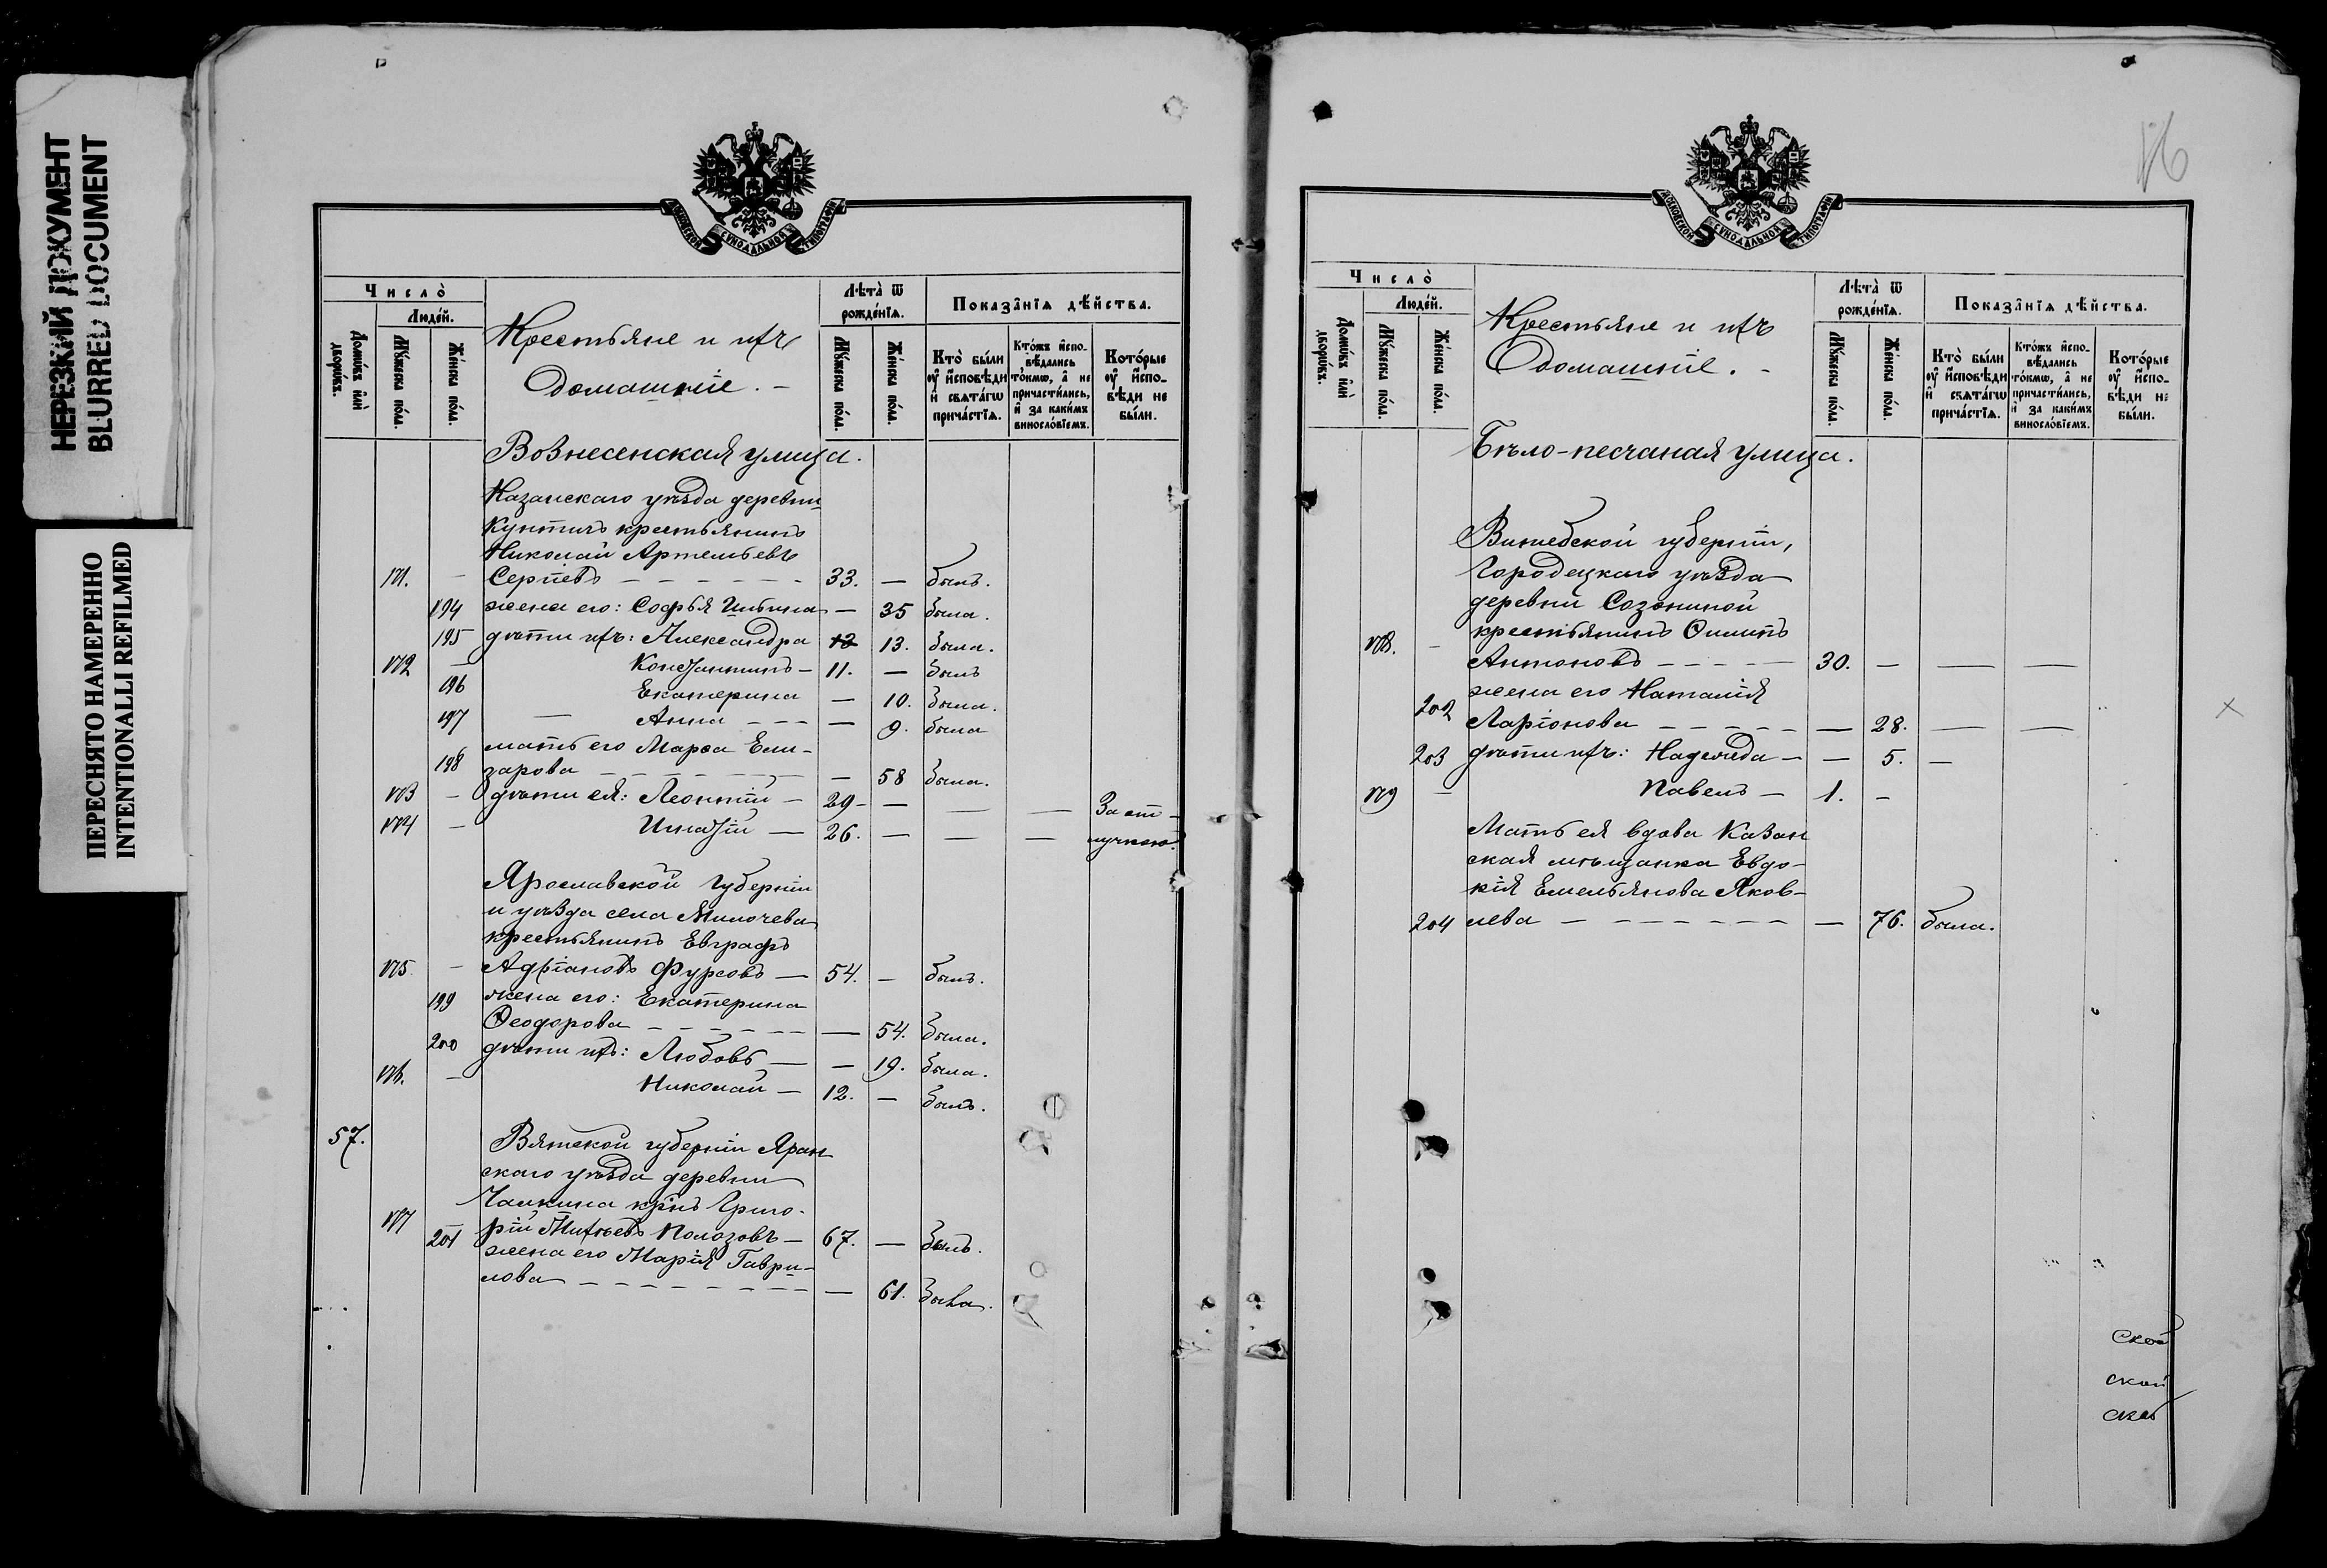 НЕРЕЗКИЙ ДОКУМЕНТ
BLURRED DOCUMENT
ПЕРЕСНЯТО НАМЕРЕННО
INTENTIONALLI REFILMED
МОСКОВСКОЙ СѴНОДАЛЬНОЙ ТИПОГРАФІИ
Число̀
Людéй.
Домѡ́въ и҆лѝ дворѡ́въ.
Мꙋ́жеска по́ла.
Же́нска по́ла.
Крестьяне и ихъ
домашніе. –
Лѣта̀ ѿ рожде́нїѧ.
Мꙋ́жеска по́ла.
Же́нска по́ла.
Показа̑нїѧ дѣ́йства.
Кто̀ бы́ли ᲂу҆ и҆сповѣ́ди и҆ свѧта́гѡ прича́стїѧ.
Кто́жъ и҆спо-вѣ́дались то́кмѡ, а҆ не причасти́лись, и҆ за каки́мъ винослові́емъ.
Кото́рые ᲂу҆ и҆спо-вѣ́ди не бы́ли.
Вознесенская улица.
Казанскаго уѣзда деревни
Кунтичъ крестьянинъ
Николай Артемьевъ
171. – Сергіевъ – 33. – былъ.
194 жена его: Софья Ильина – 35 была.
195 дѣти ихъ: Александра 13 13. была.
172 – Константинъ – 11. – былъ
196 Екатерина – 10. была.
197 – Анна – – 9. была
мать его Марѳа Ели-
198 зарова – – 58 была.
173 – дѣти ея: Леонтій – 29 – – – – За от-
174 – Игнатій – 26. – – – лучкою.
Ярославской губерніи
и уѣзда села Милочева
крестьянинъ Евграфъ
175. – Адріановъ Фурсовъ – 54. – былъ.
199 жена его: Екатерина
Ѳеодорова – – 54. была.
200 дѣти ихъ: Любовь – – 19. была.
176. – Николай – 12. – былъ.
57. Вятской губерніи Яран
скаго уѣзда деревни
Чалкина крнъ Григо-
177 – рій Михѣевъ Полозовъ – 67. – былъ.
201 жена его Марія Гаври-
лова – – 61. была.
16
МОСКОВСКОЙ СѴНОДАЛЬНОЙ ТИПОГРАФІИ
Число̀
Людéй.
Домѡ́въ и҆лѝ дворѡ́въ.
Мꙋ́жеска по́ла.
Же́нска по́ла.
Крестьяне и ихъ
домашніе. –
Лѣта̀ ѿ рожде́нїѧ.
Мꙋ́жеска по́ла.
Же́нска по́ла.
Показа̑нїѧ дѣ́йства.
Кто̀ бы́ли ᲂу҆ и҆сповѣ́ди и҆ свѧта́гѡ прича́стїѧ.
Кто́жъ и҆спо-вѣ́дались то́кмѡ, а҆ не причасти́лись, и҆ за каки́мъ винослові́емъ.
Кото́рые ᲂу҆ и҆спо-вѣ́ди не бы́ли.
Бѣло-песчаная улица.
Витебской губерніи,
Городецкаго уѣзда
деревни Созониной
178. – крестьянинъ Филипъ
Антоновъ – 30. – – –
жена его Наталія
202 Ларіонова – – 28. – –
203 дѣти ихъ: Надежда – – 5. –
179 – Павелъ – 1. –
Мать ея вдова Казан
ская мѣщанка Евдо-
кія Емельянова Яков-
204 лева – – 76. была.
ской
ской
ской